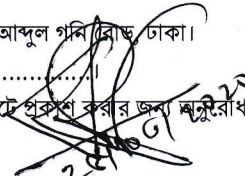 আব্দুল গনি রোড, ঢাকা।
..................।
প্রকাশ করার জন্য অনুরোধ